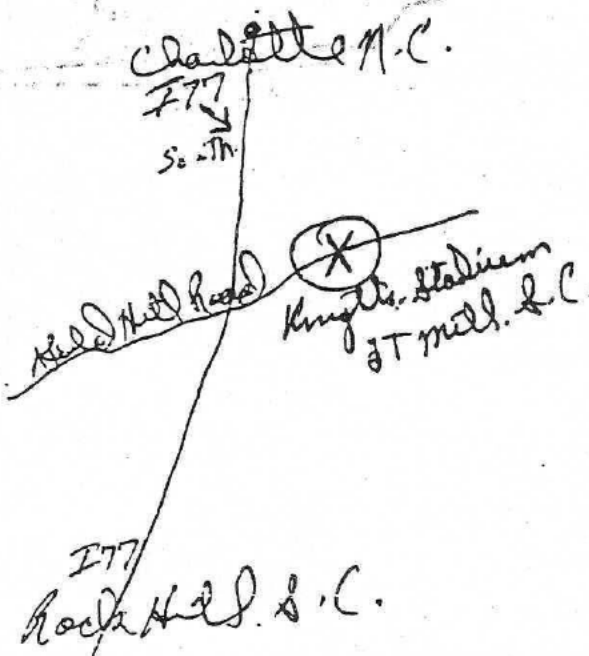 Charlotte N.C.
I77
South
X
Hill Road
Knights. Stadium
FT Mill. S.C
I77
Rock Hill. S.C.